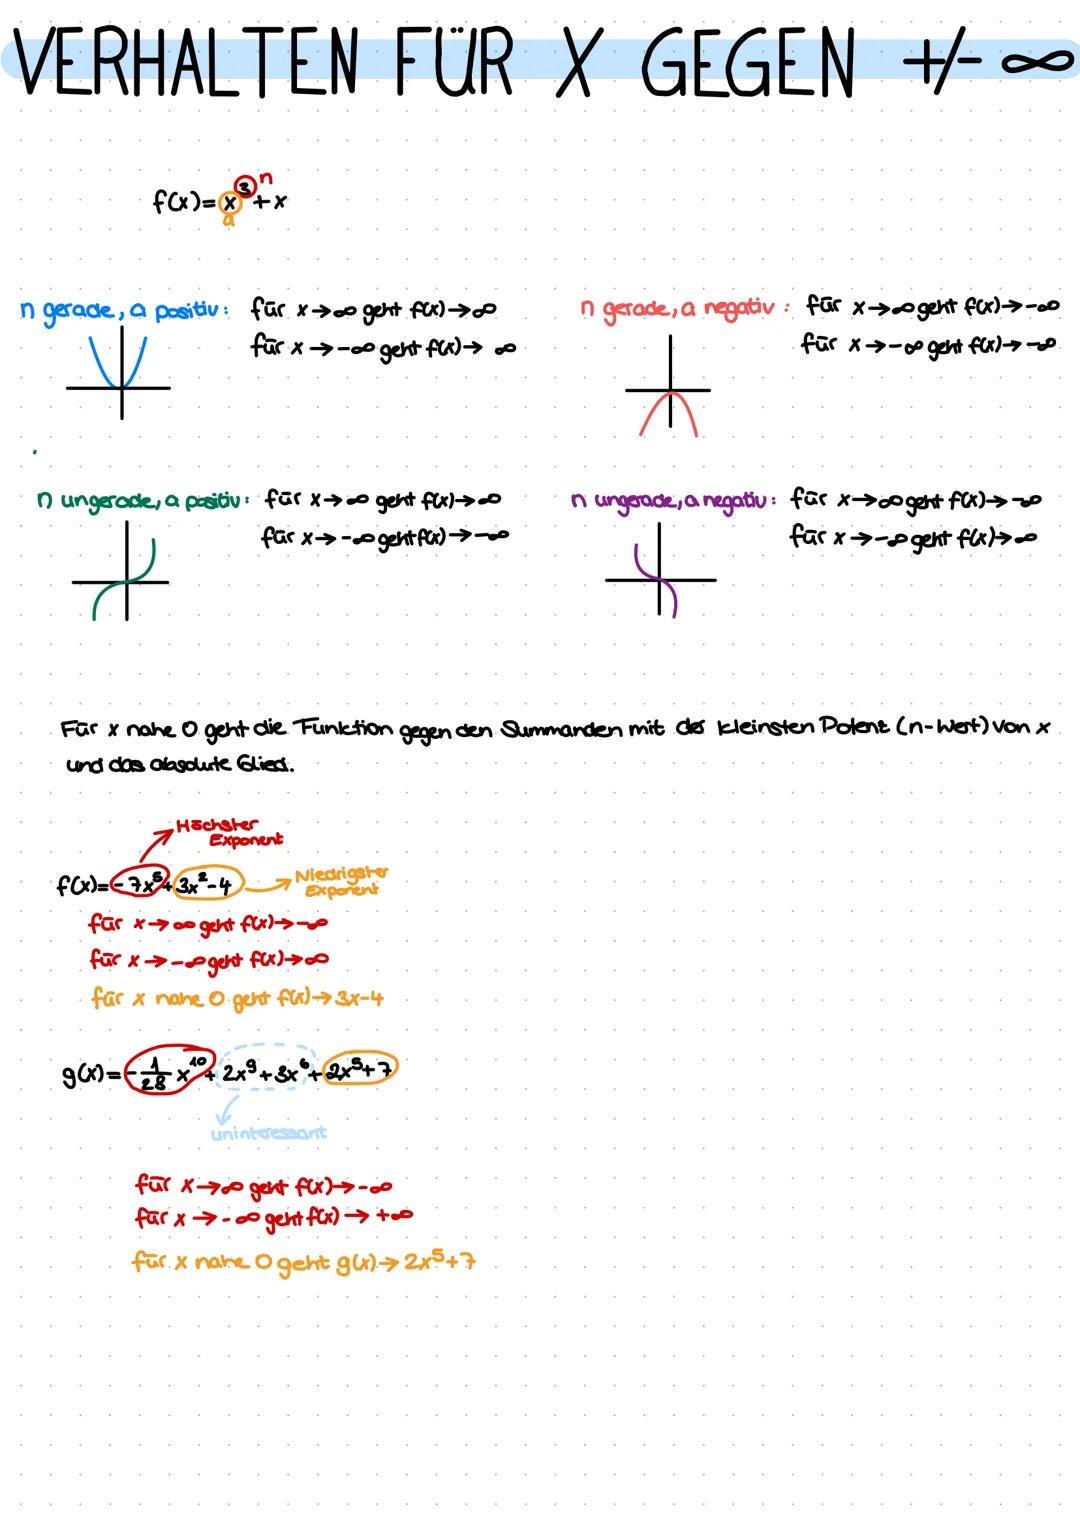 VERHALTEN FÜR X GEGEN +/- ∞
f(x)= x³ + x
n
a
n gerade, a positiv: für x→∞ geht f(x)→∞
für x→-∞ geht f(x)→ ∞
n gerade, a negativ: für x→∞ geht f(x)→-∞
für x→-∞ geht f(x)→-∞
n ungerade, a positiv: für x→∞ geht f(x)→∞
für x→-∞ geht f(x)→-∞
n ungerade, a negativ: für x→∞ geht f(x)→-∞
für x→-∞ geht f(x)→∞
Für x nahe 0 geht die Funktion gegen den Summanden mit der kleinsten Potent (n-Wert) von x
und das absolute Glied.
Höchster
Exponent
f(x)= -7x⁵+3x²-4
Niedrigster
Exponent
für x→∞ geht f(x)→-∞
für x→-∞ geht f(x)→∞
für x nahe 0 geht f(x)→3x-4
g(x)= -1/28 x¹⁰+2x⁹+3x⁶+2x⁵+7
uninteressant
für x→∞ geht f(x)→-∞
für x→-∞ geht f(x)→ +∞
für x nahe 0 geht g(x)→ 2x⁵+7